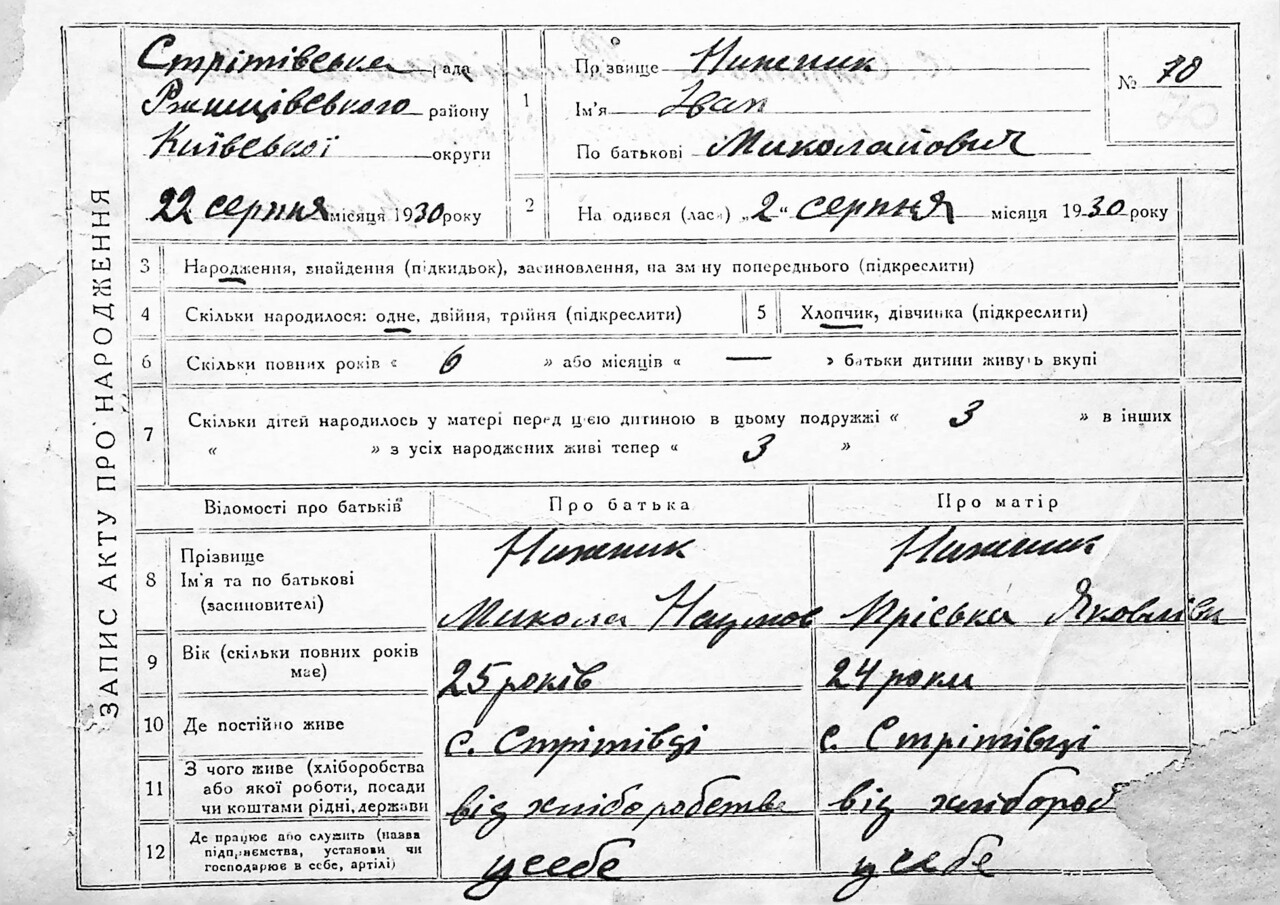 ЗАПИС АКТУ ПРО НАРОДЖЕННЯ
Стрітівська рада
Ржищівського району
Київської округи
22 серпня місяця 1930 року
1
Прізвище Нижник
Ім'я Іван
По батькові Миколайович
№ 70
70
2
На одився (лася) „2“ серпня місяця 1930 року
3 Народження, знайдення (підкидьок), засиновлення, на зміну попереднього (підкреслити)
4 Скільки народилося: одне, двійня, трійня (підкреслити)
5 Хлопчик, дівчинка (підкреслити)
6 Скільки повних років « 6 » або місяців « — » батьки дитини живуть вкупі
7 Скільки дітей народилось у матері перед цією дитиною в цьому подружжі « 3 » в інших
« » з усіх народжених живі тепер « 3 »
Відомості про батьків Про батька Про матір
8 Прізвище
Ім'я та по батькові
(засиновителі)
Нижник
Микола Наумов
Нижник
Пріська Яковлівн
9 Вік (скільки повних років
має)
25 років 24 роки
10 Де постійно живе с. Стрітівці с. Стрітівці
11 З чого живе (хліборобства
або якої роботи, посади
чи коштами рідні, держави
від хліборобства від хлібороб
12 Де працює або служить (назва
підприємства, установи чи
господарює в себе, артілі)
у себе у себе